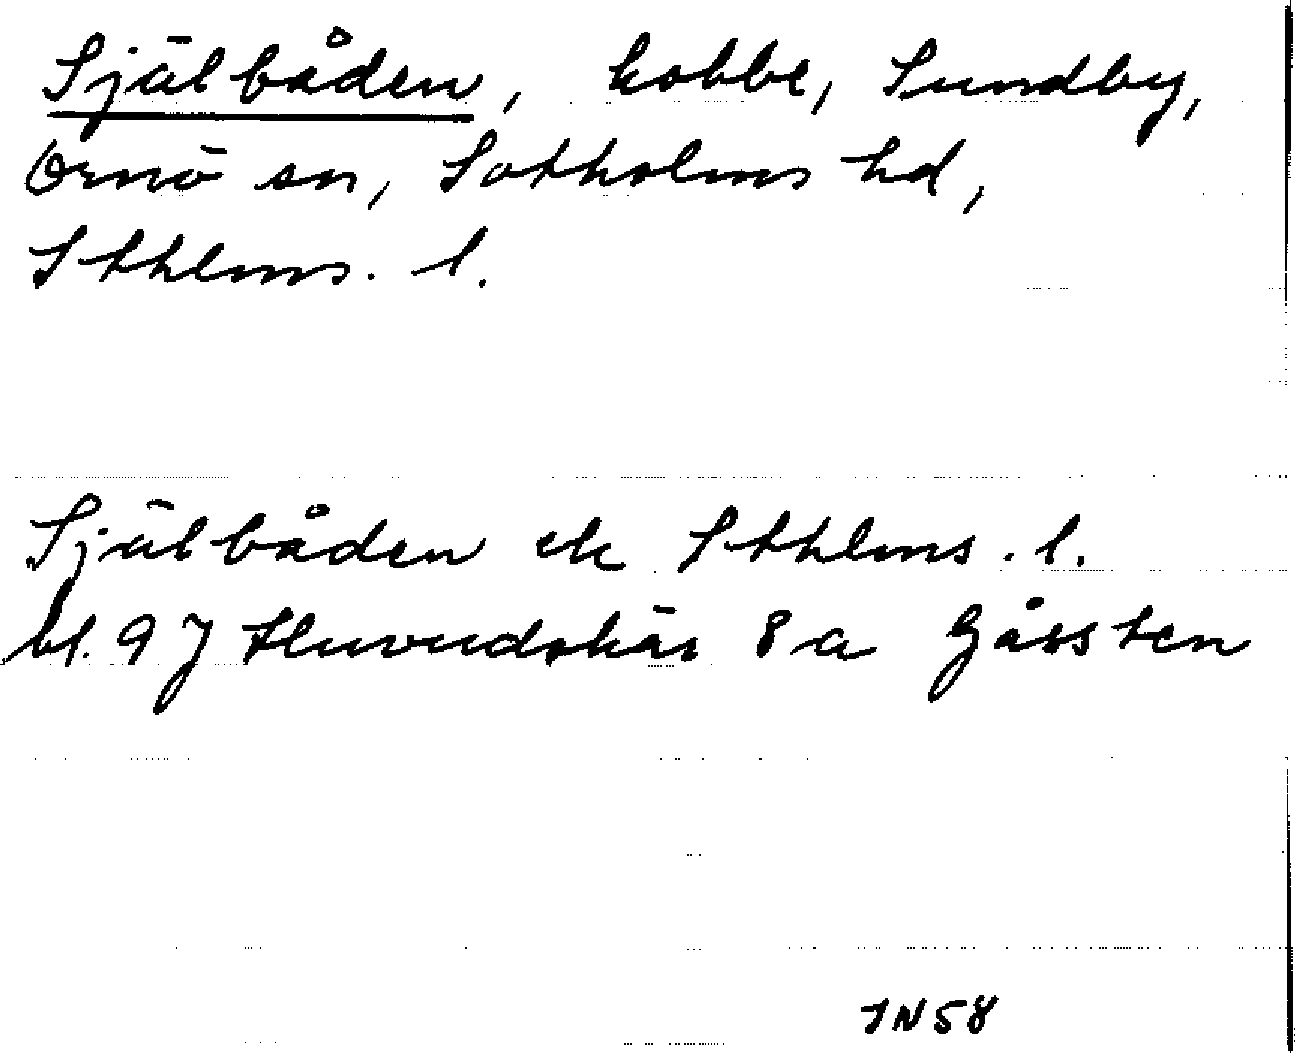 Själbåden, kobbe, Sundby,
Ornö sn, Sotholms hd,
Sthlms. l.
Själbåden ek Sthlms. l.
bl. 97 Huvudskär 8 a Gåssten
JN58